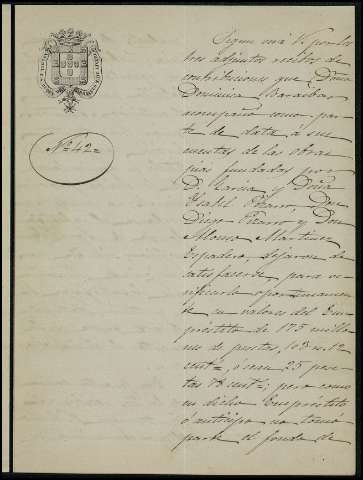 Nº 42=
Sigue una V. por los
tres adjuntos recibos de
contribuciones que Doña
Dominica Baraibar
acompaña como par-
te de data á sus
cuentas de las obras
pias fundadas por
D. García y Doña
Isabel Pizarro, Don
Diego Pizarro y Don
Alonso Martinez
Espadero, dejaron de
satisfacerse para ve-
rificarlo oportunamen-
te en valores del Em-
préstito de 175 millo-
nes de pesetas, 103 r. 12
cent.s, ó sean 25 pese-
tas 78 cent.s; pero como
en dicho Empréstito
ó anticipo no tomó
parte el fondo de